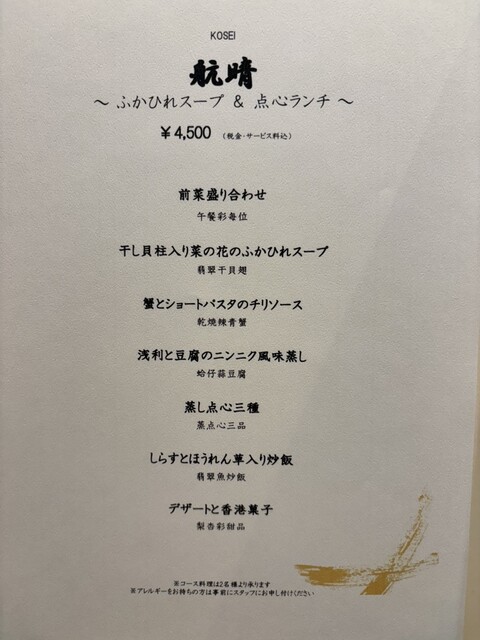 KOSEI
航晴
～ ふかひれスープ & 点心ランチ ～
￥4,500 (税金・サービス料込)
前菜盛り合わせ
午餐彩每位
干し貝柱入り菜の花のふかひれスープ
翡翠干貝翅
蟹とショートパスタのチリソース
乾燒辣青蟹
浅利と豆腐のニンニク風味蒸し
蛤仔蒜豆腐
蒸し点心三種
蒸点心三品
しらすとほうれん草入り炒飯
翡翠魚炒飯
デザートと香港菓子
梨杏彩甜品
※コース料理は2名様より承ります
※アレルギーをお持ちの方は事前にスタッフにお申し付けください